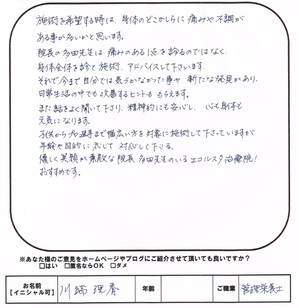 施術を希望する時は、身体のどこかしらに痛みや不調が
ある事が多いかと思います。
院長の多田先生は痛みのある1点を診るのではなく、
身体全体を診て施術、アドバイスして下さいます。
それで今まで自分では気づかなかった事や新たな発見があり、
日常生活の中でも改善するヒントももらえます。
また話をよく聞いて下さり、精神的にも安心し、心も身体も
元気になります。
子供からプロ選手まで幅広い方を対象に施術して下さっていますが
年齢や目的に応じて対応して下さる
優しく笑顔が素敵な院長多田先生のいるエコルスタ治療院!
おすすめです。
※あなた様のご意見をホームページやブログにご紹介させて頂いても良いですか?
□はい □匿名ならOK □ダメ
お名前
【イニシャル可】
川端理香
年齢
ご職業
管理栄養士